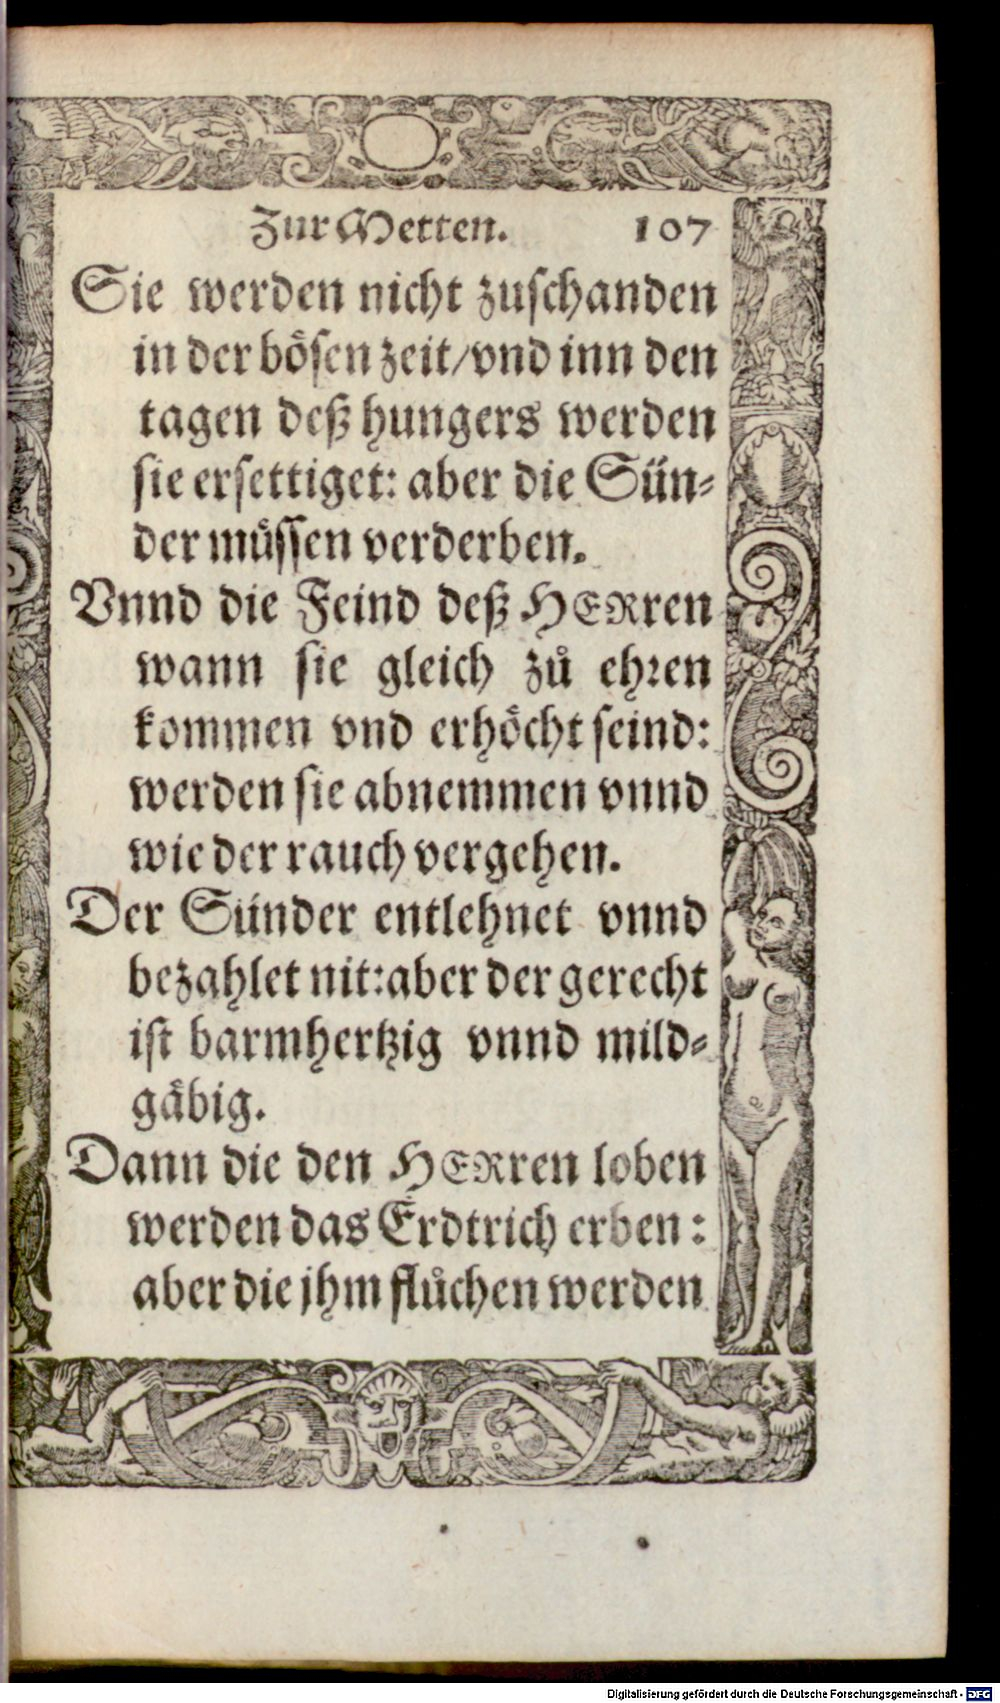 Zur Metten. 107
Sie werden nicht zuschanden
in der bösen zeit/vnd inn den
tagen deß hungers werden
sie ersettiget: aber die Sün-
der müssen verderben.
Vnnd die Feind deß HERren
wann sie gleich zů ehren
kommen vnd erhöcht seind:
werden sie abnemmen vnnd
wie der rauch vergehen.
Der Sünder entlehnet vnnd
bezahlet nit: aber der gerecht
ist barmhertzig vnnd mild-
gäbig.
Dann die den HERren loben
werden das Erdtrich erben:
aber die jhm flůchen werden
Digitalisierung gefördert durch die Deutsche Forschungsgemeinschaft - DFG